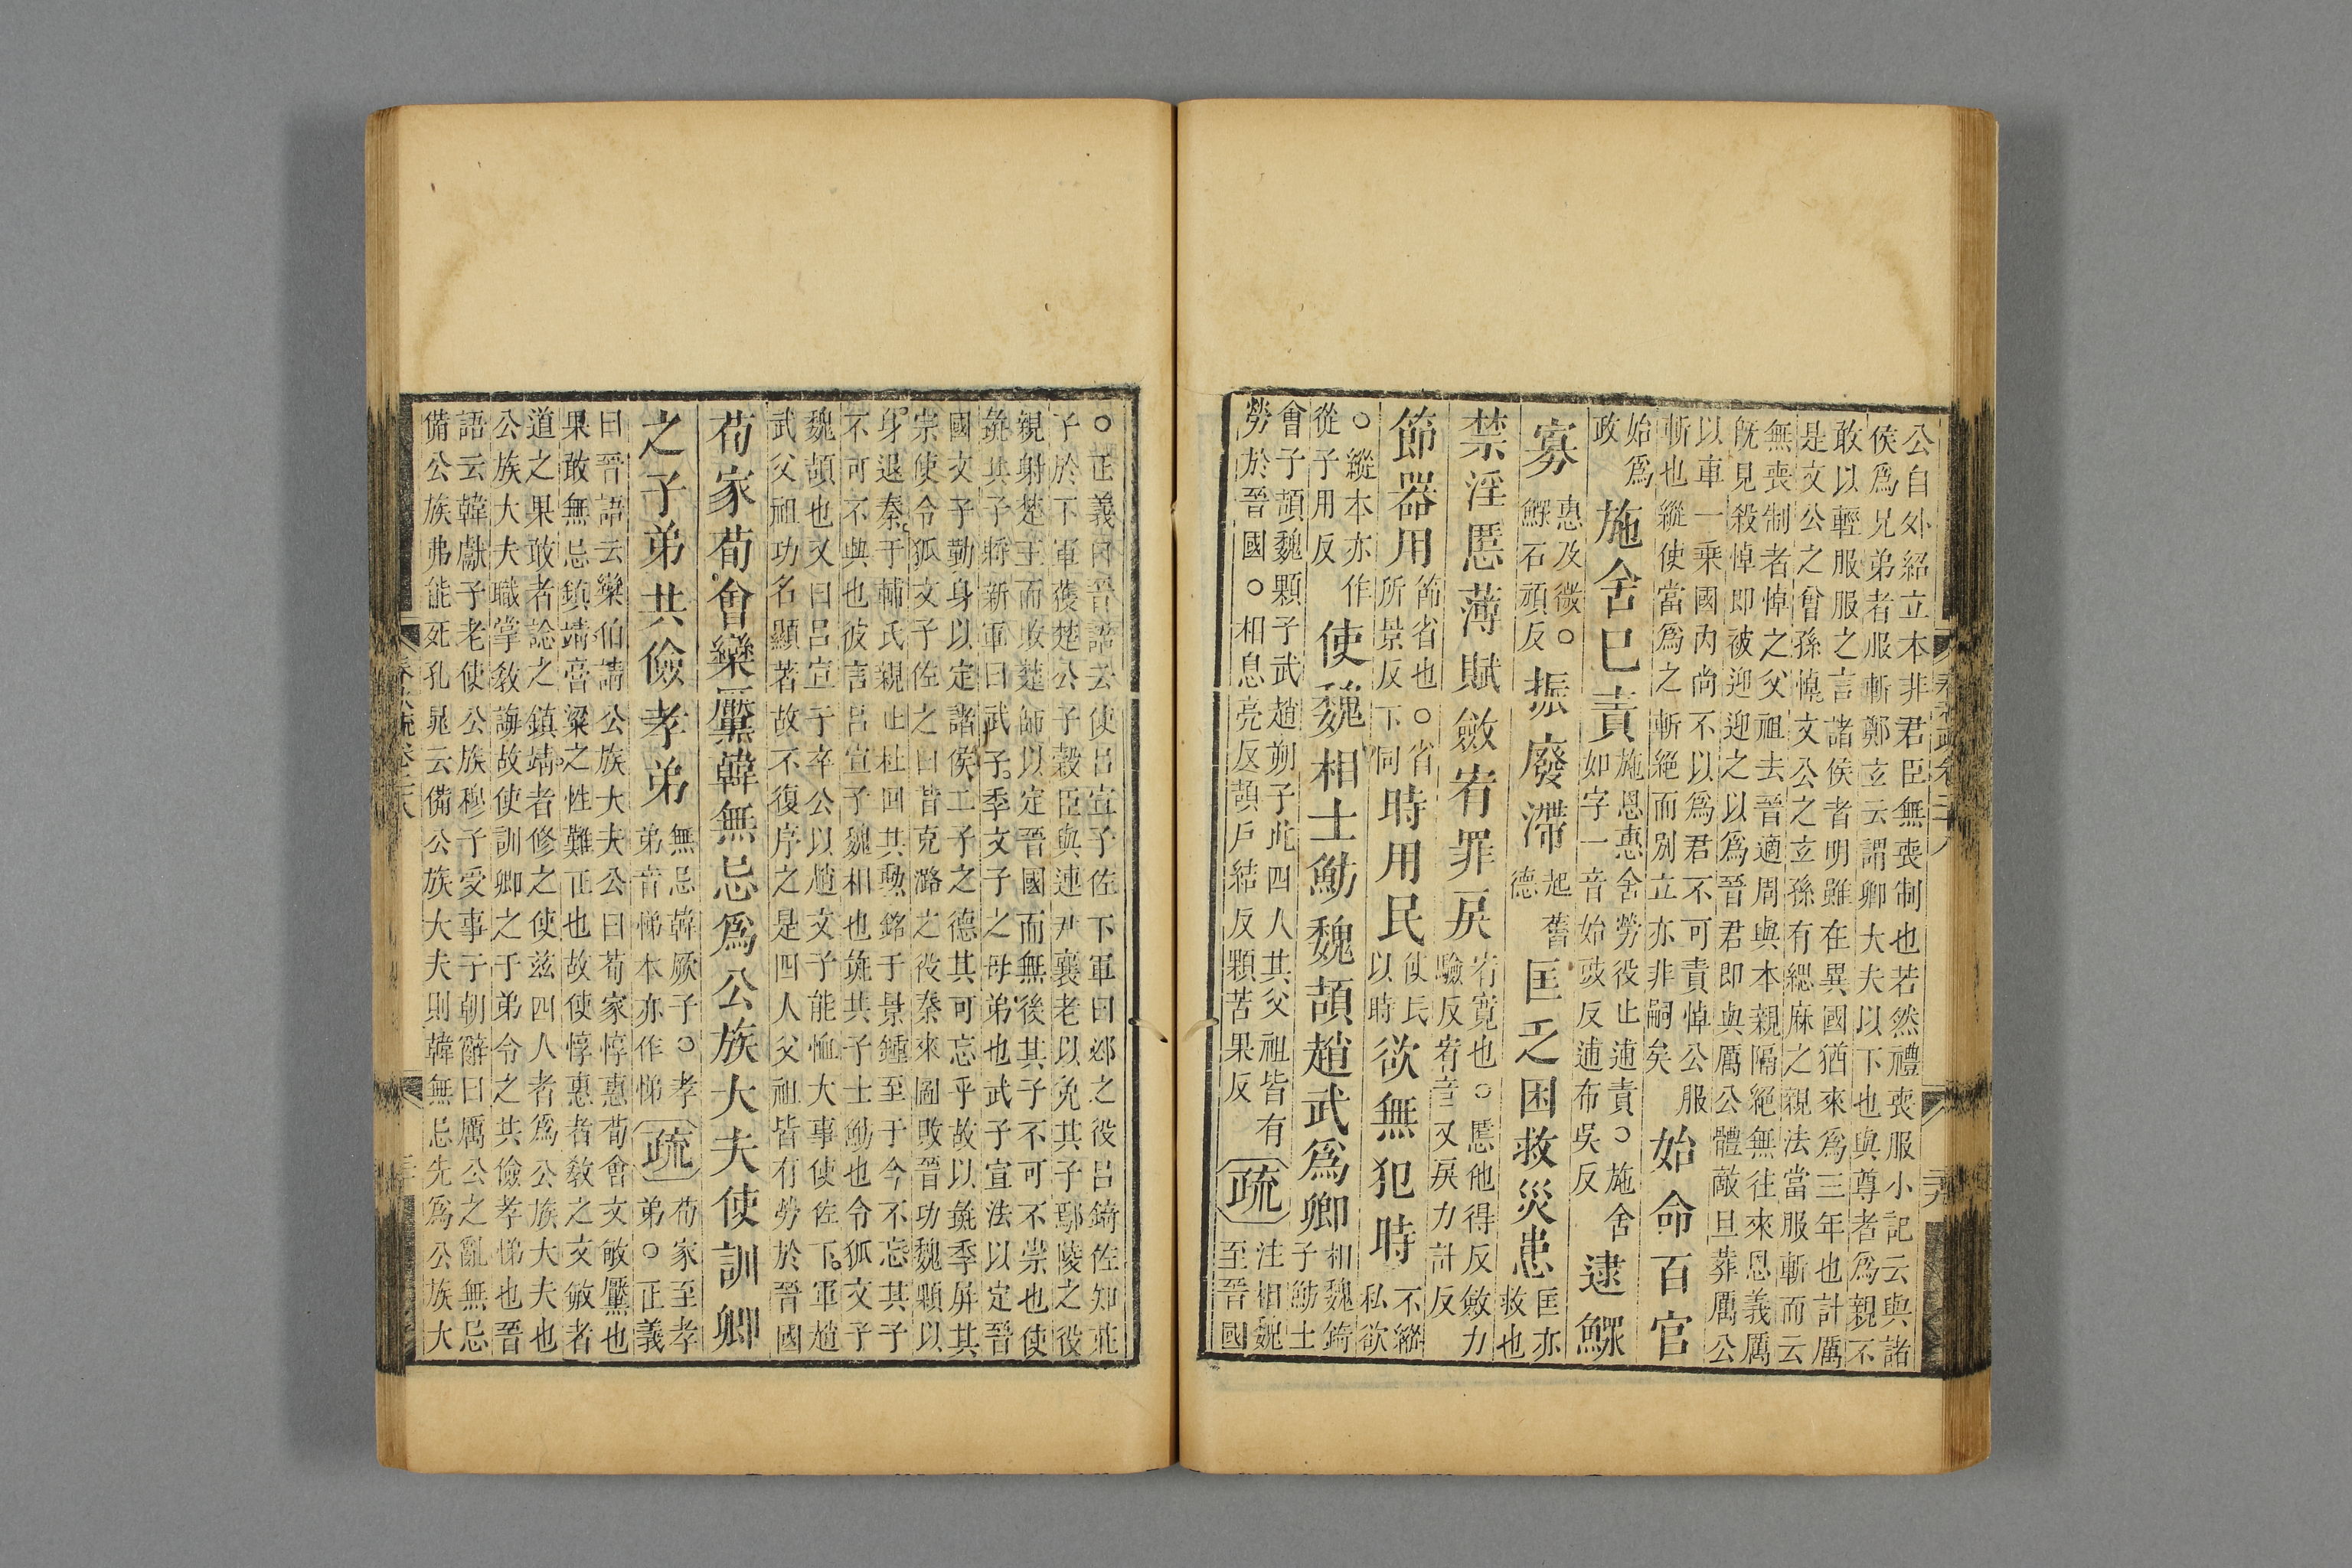 公自外紹立本非君臣無喪制也若然禮喪服小記云與諸
侯爲兄弟者服斬鄭玄云謂卿大夫以下也與尊者爲親不
敢以輕服服之言諸侯者明雖在異國猶來爲三年也計厲
是文公之曾孫悼文公之立孫有緦麻之親法當服斬而云
無喪制者悼之父祖去晉適周與本親隔絕無往來恩義厲
旣見殺悼即被迎迎之以爲晉君即與厲公體敵且葬厲公
以車一乘國內尚不以爲君不可責悼公服
斬也縱使當爲之斬絕而別立亦非嗣矣
始命百官
始爲
政
施舍已責
施恩惠舍勞役止逋責○施舍
如字一音始豉反逋布吳反
逮鰥
寡
惠及微○
鰥石頑反
振廢滯
起舊
德
匡乏困救災患
匡亦
救也
禁淫慝薄賦斂宥罪戾
宥寬也○慝他得反斂力
驗反宥音又戾力計反
節器用
節省也○省
所景反下同
時用民
使民
以時
欲無犯時
不縱
私欲
○縱本亦作
從子用反
使魏相士魴魏頡趙武爲卿
相魏錡
子魴士
會子頡魏顆子武趙朔子此四人其父祖皆有
勞於晉國○相息亮反頡戶結反顆苦果反
疏
注相魏
至晉國
○正義曰晉語云使呂宣子佐下軍曰邲之役呂錡佐知莊
子於下軍獲楚公子穀臣與連尹襄老以免其子鄢陵之役
親射楚王而敗楚師以定晉國而無後其子不可不崇也使
彘共子將新軍曰武子季文子之母弟也武子宣法以定晉
國文子勤身以定諸侯二子之德其可忘乎故以彘季屏其
宗使令狐文子佐之曰昔克潞之役秦來圖敗晉功魏顆以
身退秦于輔氏親止杜回其勳銘于景鍾至于今不忘其子
不可不興也彼言呂宣子魏相也彘共子士魴也令狐文子
魏頡也又曰呂宣子卒公以趙文子能恤大事使佐下軍趙
武父祖功名顯著故不復序之是四人父祖皆有勞於晉國
荀家荀會欒黶韓無忌爲公族大夫使訓卿
之子弟共儉孝弟
無忌韓厥子○孝
弟音悌本亦作悌
疏
荀家至孝
弟○正義
曰晉語云欒伯請公族大夫公曰荀家惇惠荀會文敏黶也
果敢無忌鎮靖膏粱之性難正也故使惇惠者教之文敏者
道之果敢者諗之鎮靖者修之使茲四人者爲公族大夫也
公族大夫職掌教誨故使訓卿之子弟令之共儉孝悌也晉
語云韓獻子老使公族穆子受事于朝辭曰厲公之亂無忌
備公族弗能死孔晁云備公族大夫則韓無忌先爲公族大